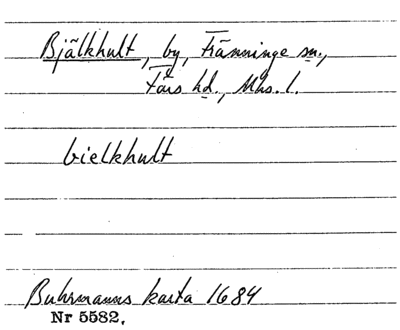 Bjälkhult, by, Tranninge sn.,
Färs hd., Mhs. l.
bielkhult
Buhrmanns karta 1684
Nr 5582.